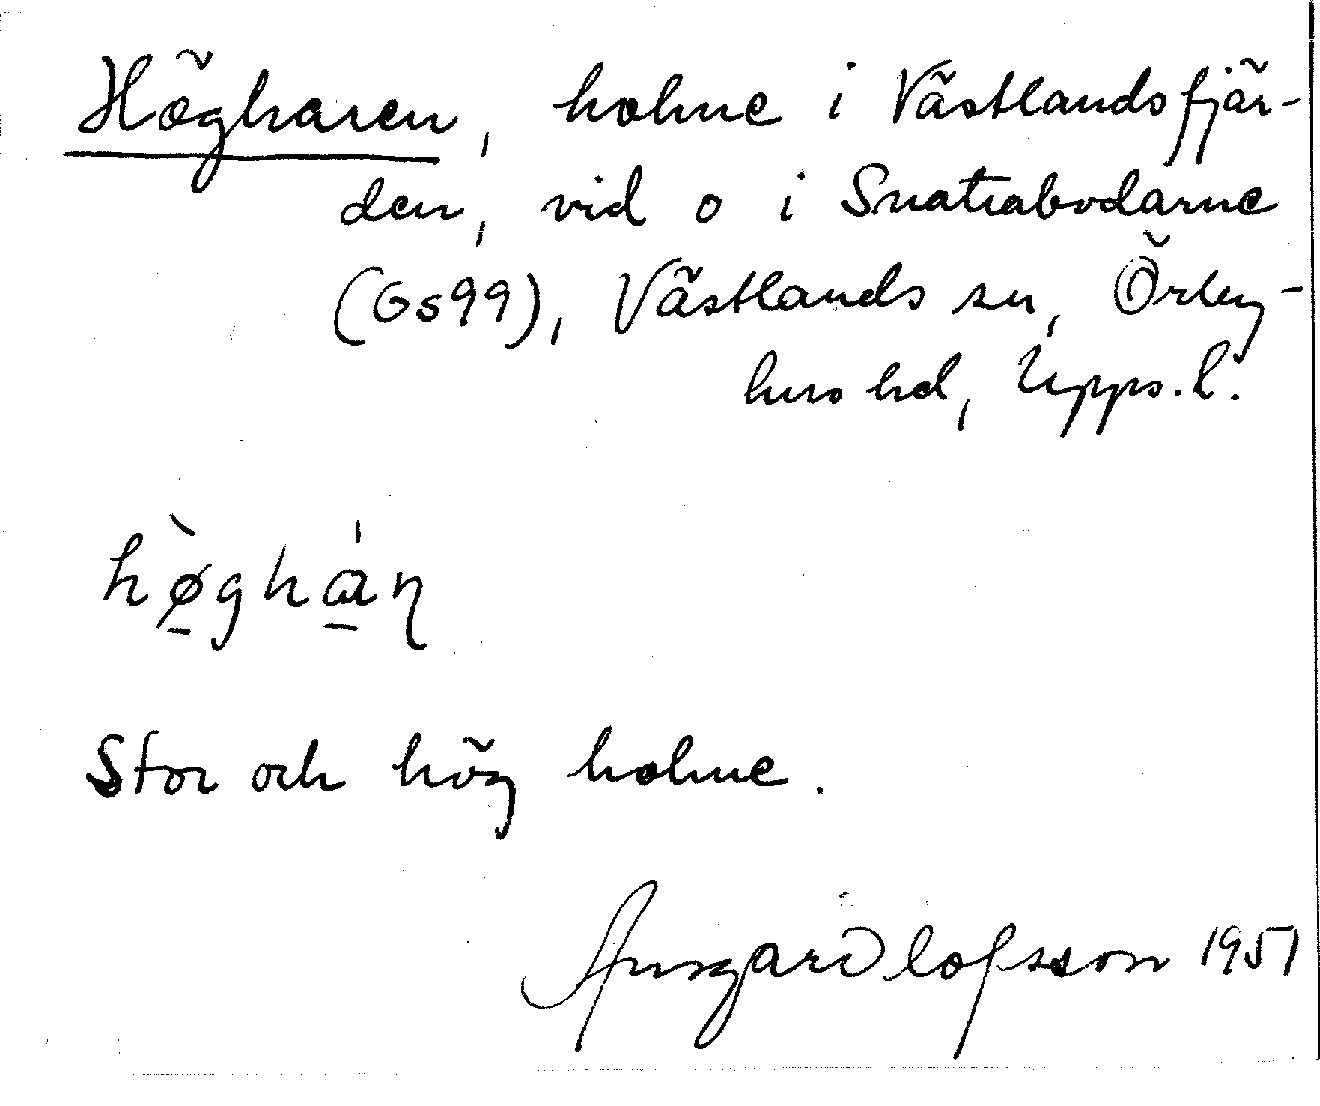 Högharen, holme i Västlandsfjär-
den, vid o i Snatrabodarne
(Gs99), Västlands sn, Örby-
hus hd, Upps.l.
hø̀ghàṇ
Stor och hög holme.
Olofsson 1951